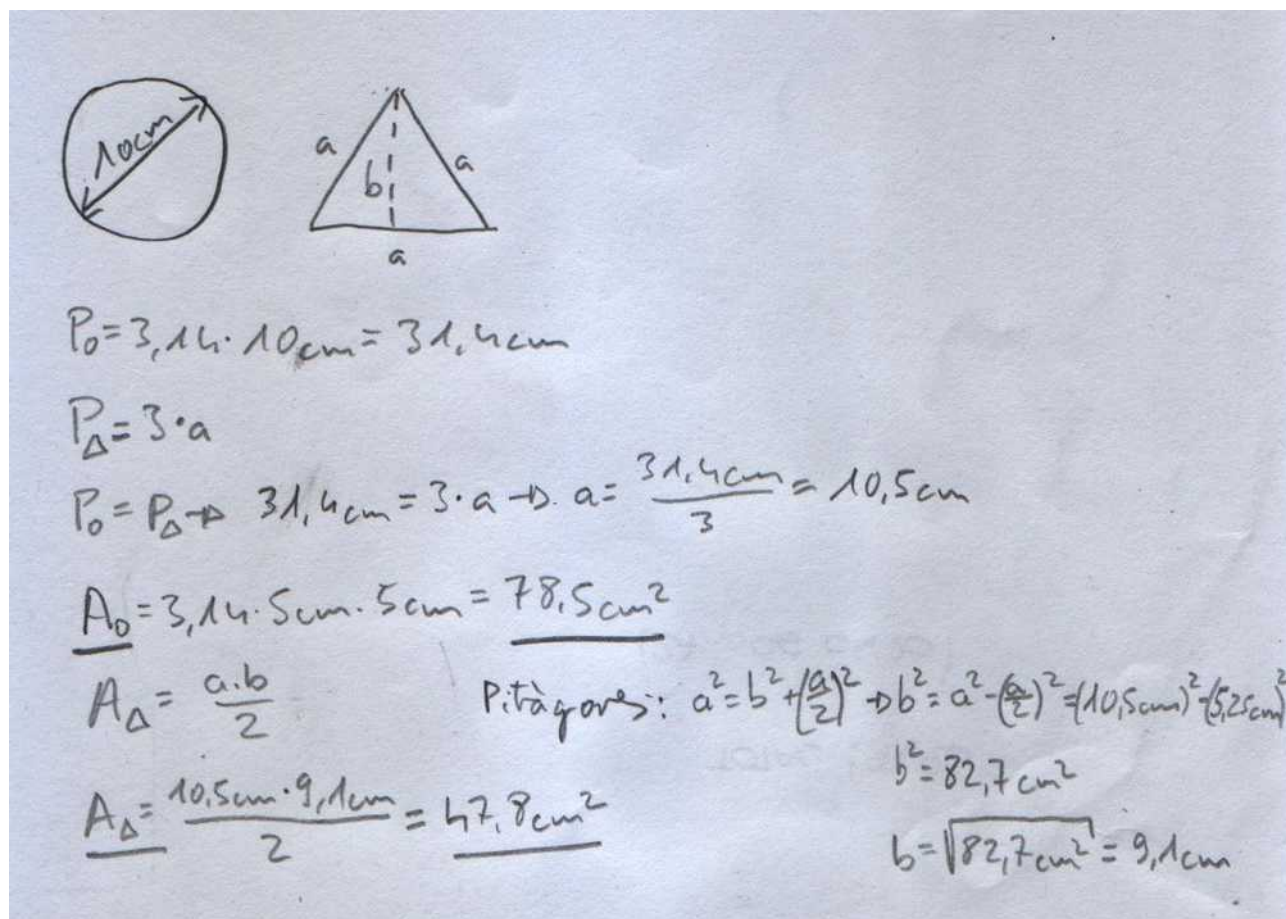 10cm
a
b
a
a
P₀=3,14·10cm=31,4cm
P△=3·a
P₀=P△→ 31,4cm=3·a→ a=31,4cm/3=10,5cm
A₀=3,14·5cm·5cm=78,5cm²
A△=a·b/2
Pitàgores: a²=b²+(a/2)²→b²=a²-(a/2)²=(10,5cm)²-(5,25cm)²
b²=82,7cm²
A△=10,5cm·9,1cm/2=47,8cm²
b=√82,7cm²=9,1cm